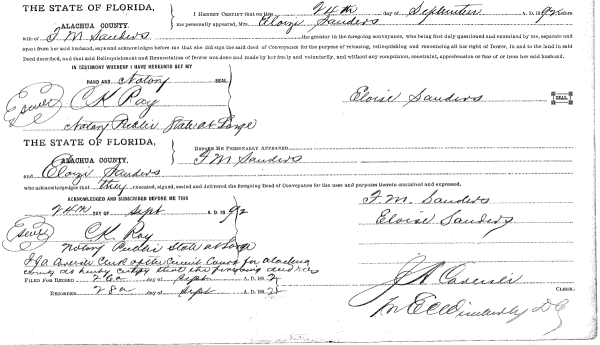 THE STATE OF FLORIDA,
ALACHUA COUNTY.
I HEREBY CERTIFY that on this 24th day of September A. D. 1892 before
me personally appeared, Mrs. Eloize Sanders
wife of T M Sanders the grantor in the foregoing conveyance, who being first duly questioned and examined by me, separate and
apart from her said husband, expressed acknowledges before me that she did sign the said deed of Conveyance for the purpose of releasing, relinquishing and renouncing all her right of Dower, in and to the land in said
Deed described, and that said Relinquishment and Renunciation of Dower was done and made by her freely and voluntarily, and without any compulsion, constraint, apprehension or fear of or from her said husband.
IN TESTIMONY WHEREOF I HAVE HEREUNTO SET MY
HAND AND Notary SEAL
CK Ray
Notary Public State at Large
Eloise Sanders
SEAL
THE STATE OF FLORIDA,
ALACHUA COUNTY.
BEFORE ME PERSONALLY APPEARED
T M Sanders
and Eloize Sanders
who acknowledges that they executed, signed, sealed and delivered the foregoing Deed of Conveyance for the uses and purposes therein contained and expressed.
ACKNOWLEDGED AND SUBSCRIBED BEFORE ME THIS
24th DAY OF Sept A. D. 1892
CK Ray
Notary Public State at Large
T. M. Sanders
Eloise Sanders
Clerk of the Circuit Court for Alachua
that the foregoing
FILED FOR RECORD 26 day of Sept A. D. 1892
RECORDED 28 day of Sept A. D. 189
CLERK.
for D C